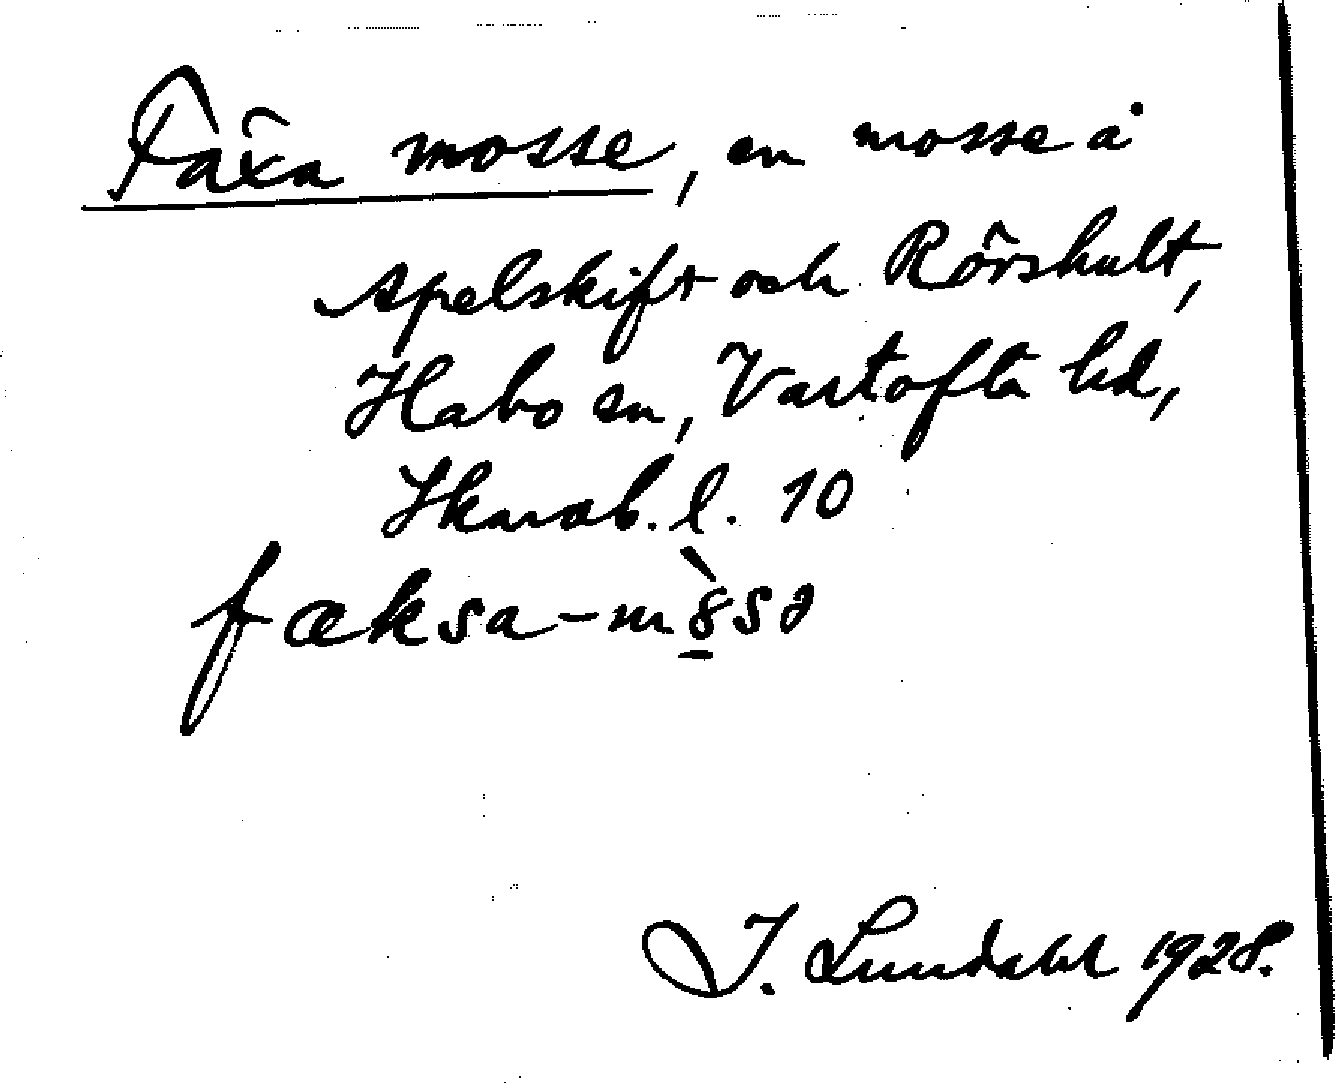 Fäxa mosse, en mosse å
Apelskift och Rörshult,
Habo sn, Vartofta hd,
Skarab. l. 10
fæksa-mò̱sə
J. Lundahl 1928.